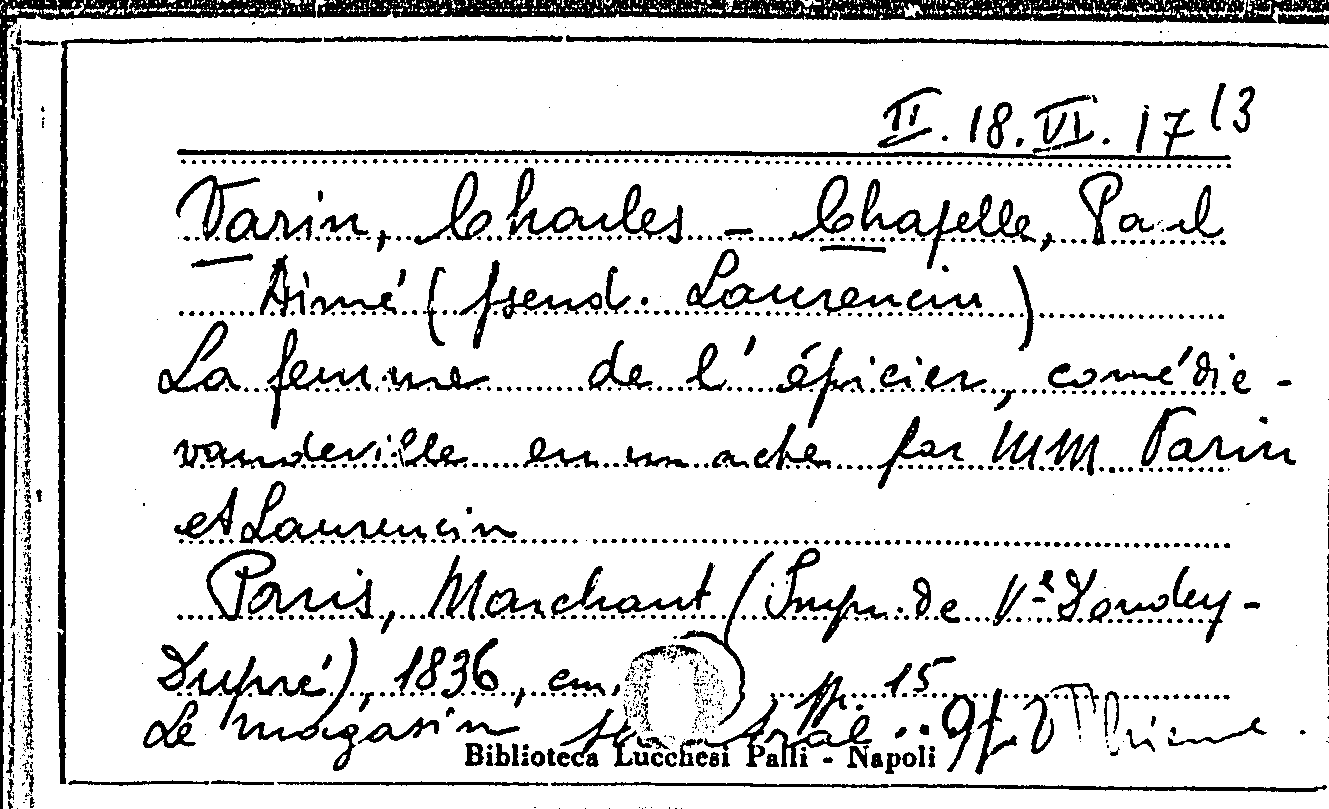 II. 18. VI. 17 13
Varin, Charles – Chapelle, Paul
Aimé (pseud. Laurencin)
La femme de l'épicier, comédie-
vaudeville en un acte par MM Varin
et Laurencin
Paris, Marchant (Impr. de Ve Dondey-
Dupré), 1836, cm. pp. 15
Le magasin
Biblioteca Lucchesi Palli - Napoli